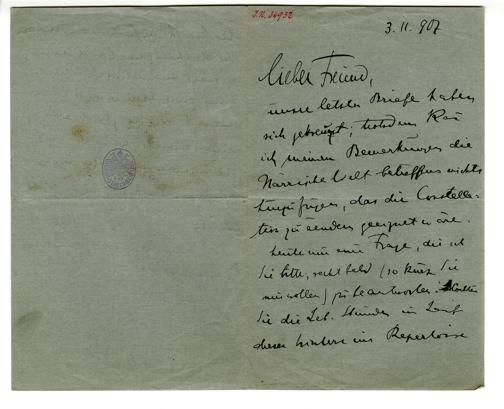 J.N. 34932
3. 11. 907
Lieber Freund,
unsere letzten Briefe haben
sich gekreuzt; trotzdem kan
ich meinen Bemerkungen die
Närrische Welt betreffens nichts
hinzufügen, das die Constella-
tion zu ändern geeignet wäre.
Heute nur eine Frage, die ich
Sie bitte, recht bald (so kurz Sie
nur wollen) zu beantworten:
Sie die Leb. Stunden im Lauf
dieses Winters ins Repertoire